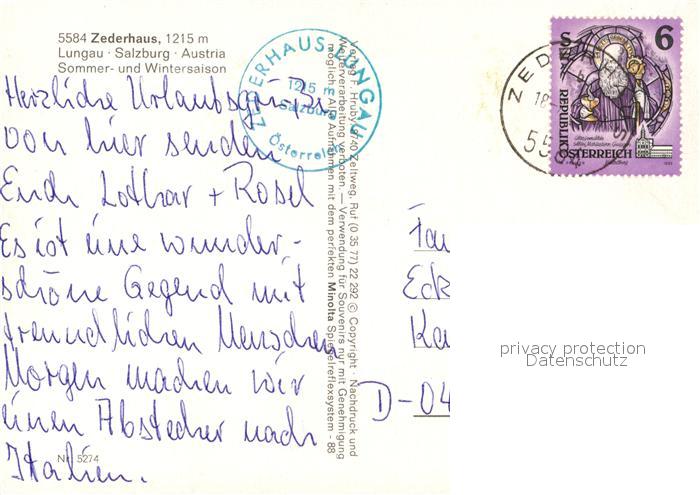 5584 Zederhaus, 1215 m
Lungau · Salzburg · Austria
Sommer- und Wintersaison
Herzliche Urlaubsgrüße
von hier senden
Euch Lothar + Rosel
Es ist eine wunder-
schöne Gegend mit
freundlichen Menschen
Morgen machen wir
einen Abstecher nach
Italien.
Nr. 5274
ZEDERHAUS-LUNGAU
1215 m
Salzburg
Österreich
Verlag F. Hruby, 8740 Zeltweg, Ruf (0 35 77) 22 292 © Copyright · Nachdruck und
Weiterverarbeitung verboten. — Verwendung für Souvenirs nur mit Genehmigung
möglich. Alle Aufnahmen mit dem perfekten Minolta Spiegelreflexsystem - 88
6
S
REPUBLIK
ÖSTERREICH
ZED
18.
55
Eck
D-04
privacy protection
Datenschutz